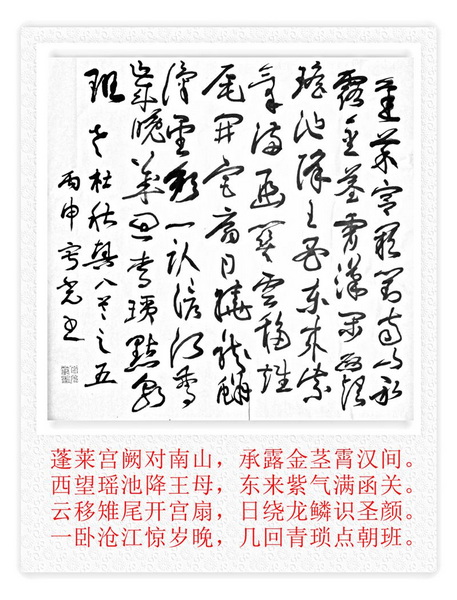 蓬莱宫阙对南山承
露金茎霄汉间西望
瑶池降王母东来紫
气满函关云移雉
尾开宫扇日绕龙鳞
识圣颜一卧沧江惊
岁晚几回青琐点朝
班 老杜秋兴八首之五
丙申
蓬莱宫阙对南山，承露金茎霄汉间。
西望瑶池降王母，东来紫气满函关。
云移雉尾开宫扇，日绕龙鳞识圣颜。
一卧沧江惊岁晚，几回青琐点朝班。